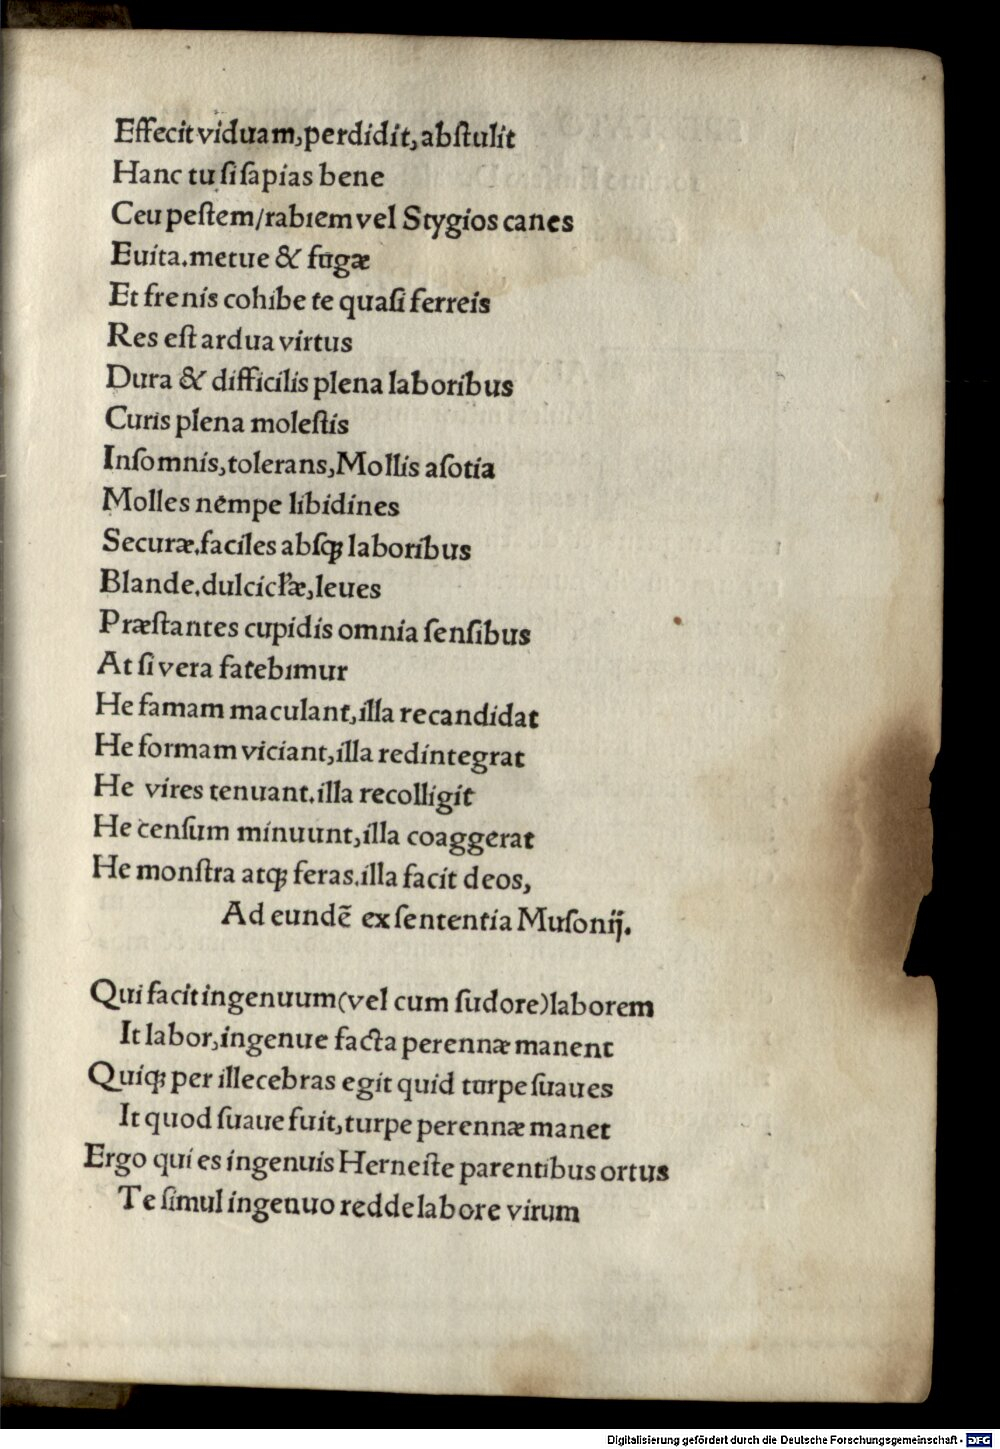 Effecit viduam,perdidit,abſtulit
Hanc tu ſi ſapias bene
Ceu peſtem/rabiem vel Stygios canes
Euita.metue & fugæ
Et frenis cohibe te quaſi ferreis
Res eſt ardua virtus
Dura & difficilis plena laboribus
Curis plena moleſtis
Inſomnis,tolerans,Mollis aſotia
Molles nempe libidines
Securæ.faciles abſqꝫ laboribus
Blande.dulcicl'æ,leues
Præſtantes cupidis omnia ſenſibus
At ſi vera fatebimur
He famam maculant,illa recandidat
He formam viciant,illa redintegrat
He vires tenuant.illa recolligit
He cenſum minuunt,illa coaggerat
He monſtra atqꝫ feras.illa facit deos,
Ad eundē ex ſententia Muſonij.
Qui facit ingenuum(vel cum ſudore)laborem
It labor,ingenue facta perennæ manent
Quiqꝫ per illecebras egit quid turpe ſuaues
It quod ſuaue fuit,turpe perennæ manet
Ergo qui es ingenuis Herneſte parentibus ortus
Te ſimul ingenuo redde labore virum
Digitalisierung gefördert durch die Deutsche Forschungsgemeinschaft - DFG